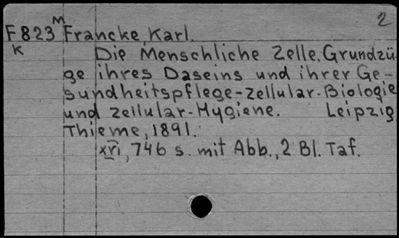 2
F823 M Francke, Karl.
K Die Menschliche Zelle. Grundzü
ge ihres Daseins und ihrer Ge-
sundheitspflege-zellular-Biologie
und zellular-Hygiene. Leipzig
Thieme, 1891.
xvi, 746 s. mit Abb., 2 Bl. Taf.